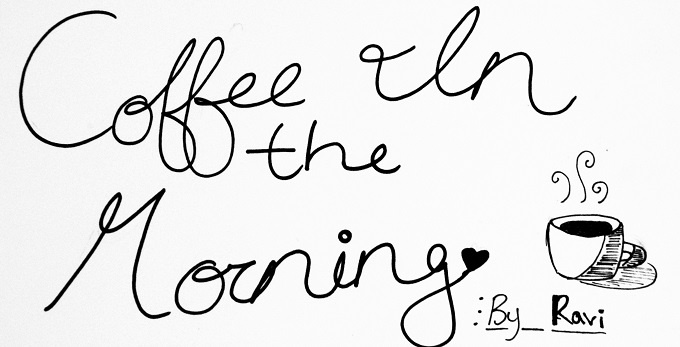 Coffee In
the
Morning
:By_ Ravi